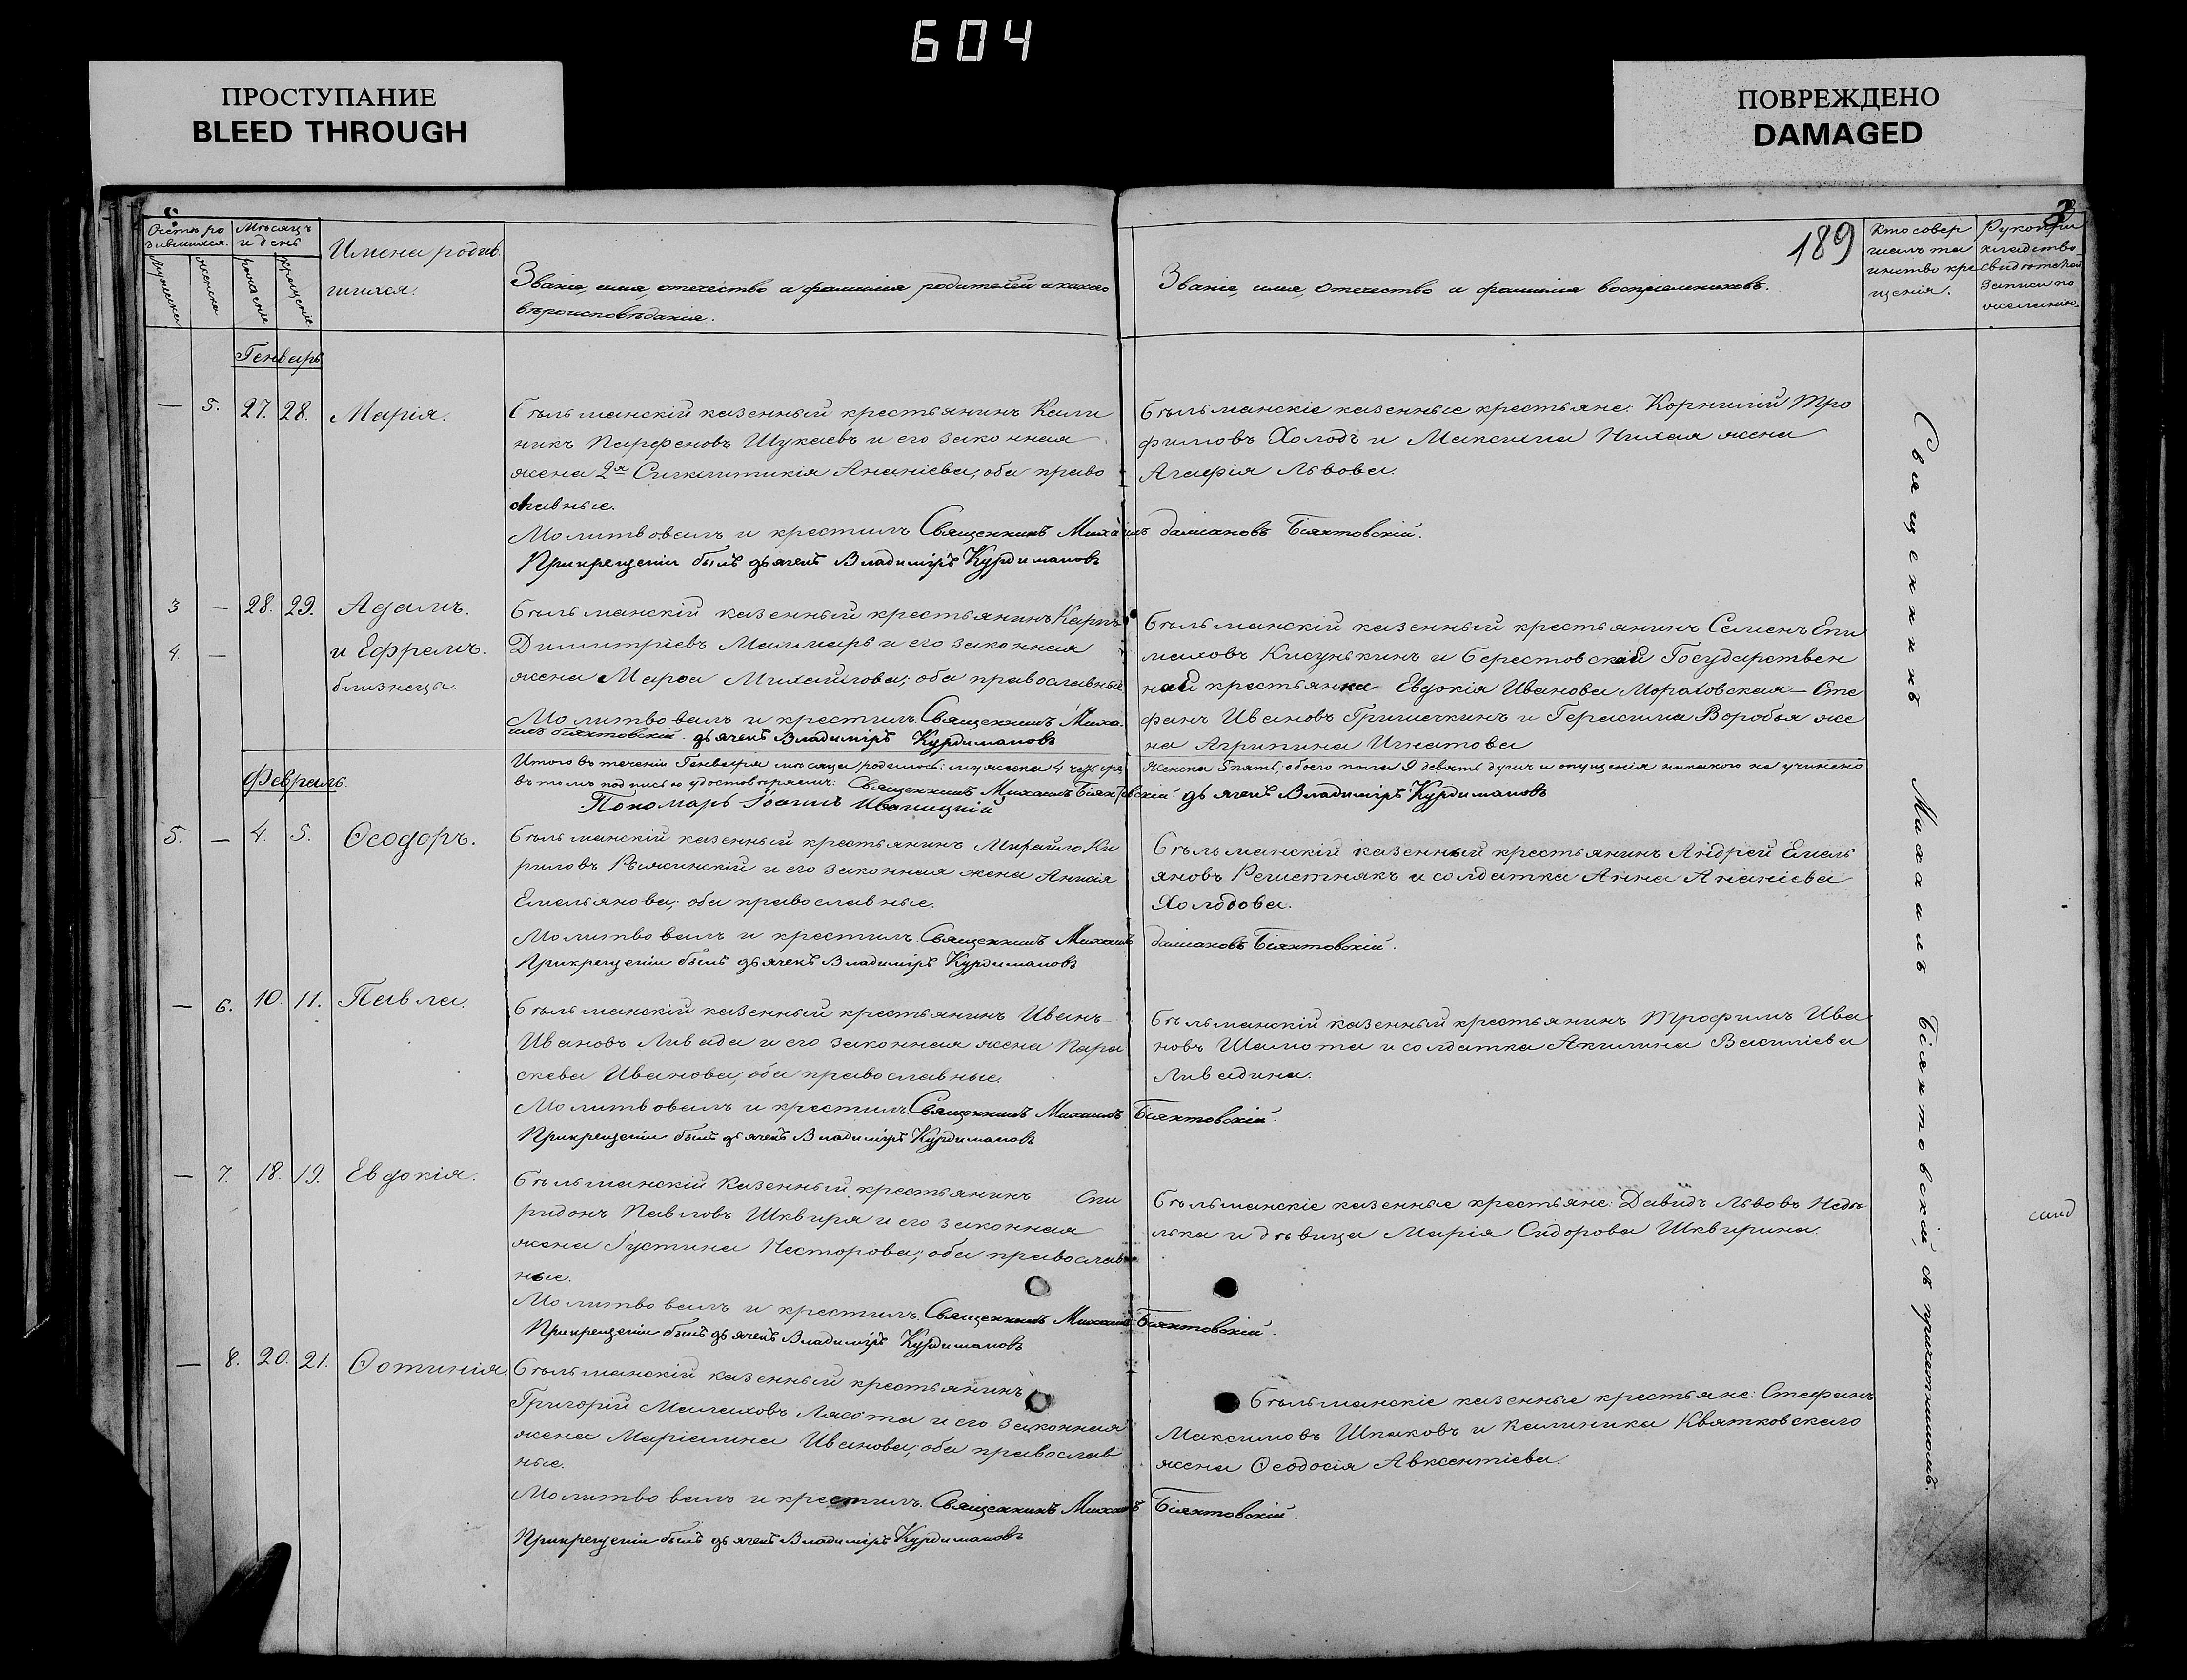 604
ПРОСТУПАНИЕ
BLEED THROUGH
ПОВРЕЖДЕНО
DAMAGED
189
3
Мѣсяцъ и день
рожденіе
крещеніе
Имена родив
шихся.
Званіе, имя, отечество и фамилія родителей и какого
вѣроисповѣданія.
Званіе, имя, отечество и фамилія воспріемниковъ.
Кто совер
шалъ та
инство кре
щенія.
Рукопри
кладство
свидѣтелей
записи по
желанію.
Генварь
— 5. 27. 28. Марія.
Бѣльманскій казенный крестьянинъ Кали
никъ Парфеновъ Шукаевъ и его законная
жена 2я Сигклитикія Ананіева; оба право
славные.
Молитвовалъ и крестилъ Священникъ Михаилъ Даміановъ Біяктовскій.
При крещеніи былъ дьячекъ Владиміръ Курдимановъ
Бѣльманскіе казенные крестьяне: Корнилій Тро
фимовъ Холодъ и Максима Нилая жена
Агафія Львова.
3 — 28. 29. Адамъ.
4. — и Ефремъ.
близнецы.
Бѣльманскій казенный крестьянинъ Карпъ
Димитріевъ Малмарь и его законная
жена Марѳа Михайлова; оба православные
Молитвовалъ и крестилъ Священникъ Миха
илъ Біяктовскій. дьячекъ Владиміръ Курдимановъ
Бѣльманскій казенный крестьянинъ Семенъ Епи
маховъ Кисунькинъ и Берестовской Государствен
ной крестьянка Евдокія Иванова Мораховская — Сте
фанъ Ивановъ Гришечкинъ и Герасима Воробья же
на Агрипина Игнатова
Итого въ теченіи Генваря мѣсяца родилось: мужеска 4 четыре, женска 5 пять, обоего пола 9 девять душъ и опущенія никакого не учинено
въ томъ подписью удостовѣряемъ: Священникъ Михаилъ Біяктовскій. дьячекъ Владиміръ Курдимановъ
Пономарь Іоаннъ Иваницкій
Февраль.
5. — 4. 5. Ѳеодоръ.
Бѣльманскій казенный крестьянинъ Михайло Ки
риловъ Рясинскій и его законная жена Анисія
Емельянова; оба православные.
Молитвовалъ и крестилъ Священникъ Михаилъ Даміановъ Біяктовскій.
При крещеніи былъ дьячекъ Владиміръ Курдимановъ
Бѣльманскій казенный крестьянинъ Андрей Емель
яновъ Решетнякъ и солдатка Анна Ананіева
Холодова.
— 6. 10. 11. Павла.
Бѣльманскій казенный крестьянинъ Иванъ
Ивановъ Ливада и его законная жена Пара
скева Иванова; оба православные.
Молитвовалъ и крестилъ Священникъ Михаилъ Біяктовскій.
При крещеніи былъ дьячекъ Владиміръ Курдимановъ
Бѣльманскій казенный крестьянинъ Трофимъ Ива
новъ Шамота и солдатка Акилина Василіева
Ливадина.
— 7. 18. 19. Евдокія.
Бѣльманскій казенный крестьянинъ Спи
ридонъ Павловъ Шквиря и его законная
жена Іустина Несторова; оба православ
ные.
Молитвовалъ и крестилъ Священникъ Михаилъ Біяктовскій.
При крещеніи былъ дьячекъ Владиміръ Курдимановъ
Бѣльманскіе казенные крестьяне: Давидъ Львовъ Недѣ
лька и дѣвица Марія Сидорова Шквирина.
— 8. 20. 21. Ѳотинія.
Бѣльманскій казенный крестьянинъ
Григорій Малаховъ Лясота и его законная
жена Маріамна Иванова; оба православ
ные.
Молитвовалъ и крестилъ Священникъ Михаилъ Біяктовскій.
При крещеніи былъ дьячекъ Владиміръ Курдимановъ
Бѣльманскіе казенные крестьяне: Стефанъ
Максимовъ Шпаковъ и Калиника Квятковскаго
жена Ѳеодосія Авксентіева.
Священникъ Михаилъ Біяктовскій съ причетникомъ.